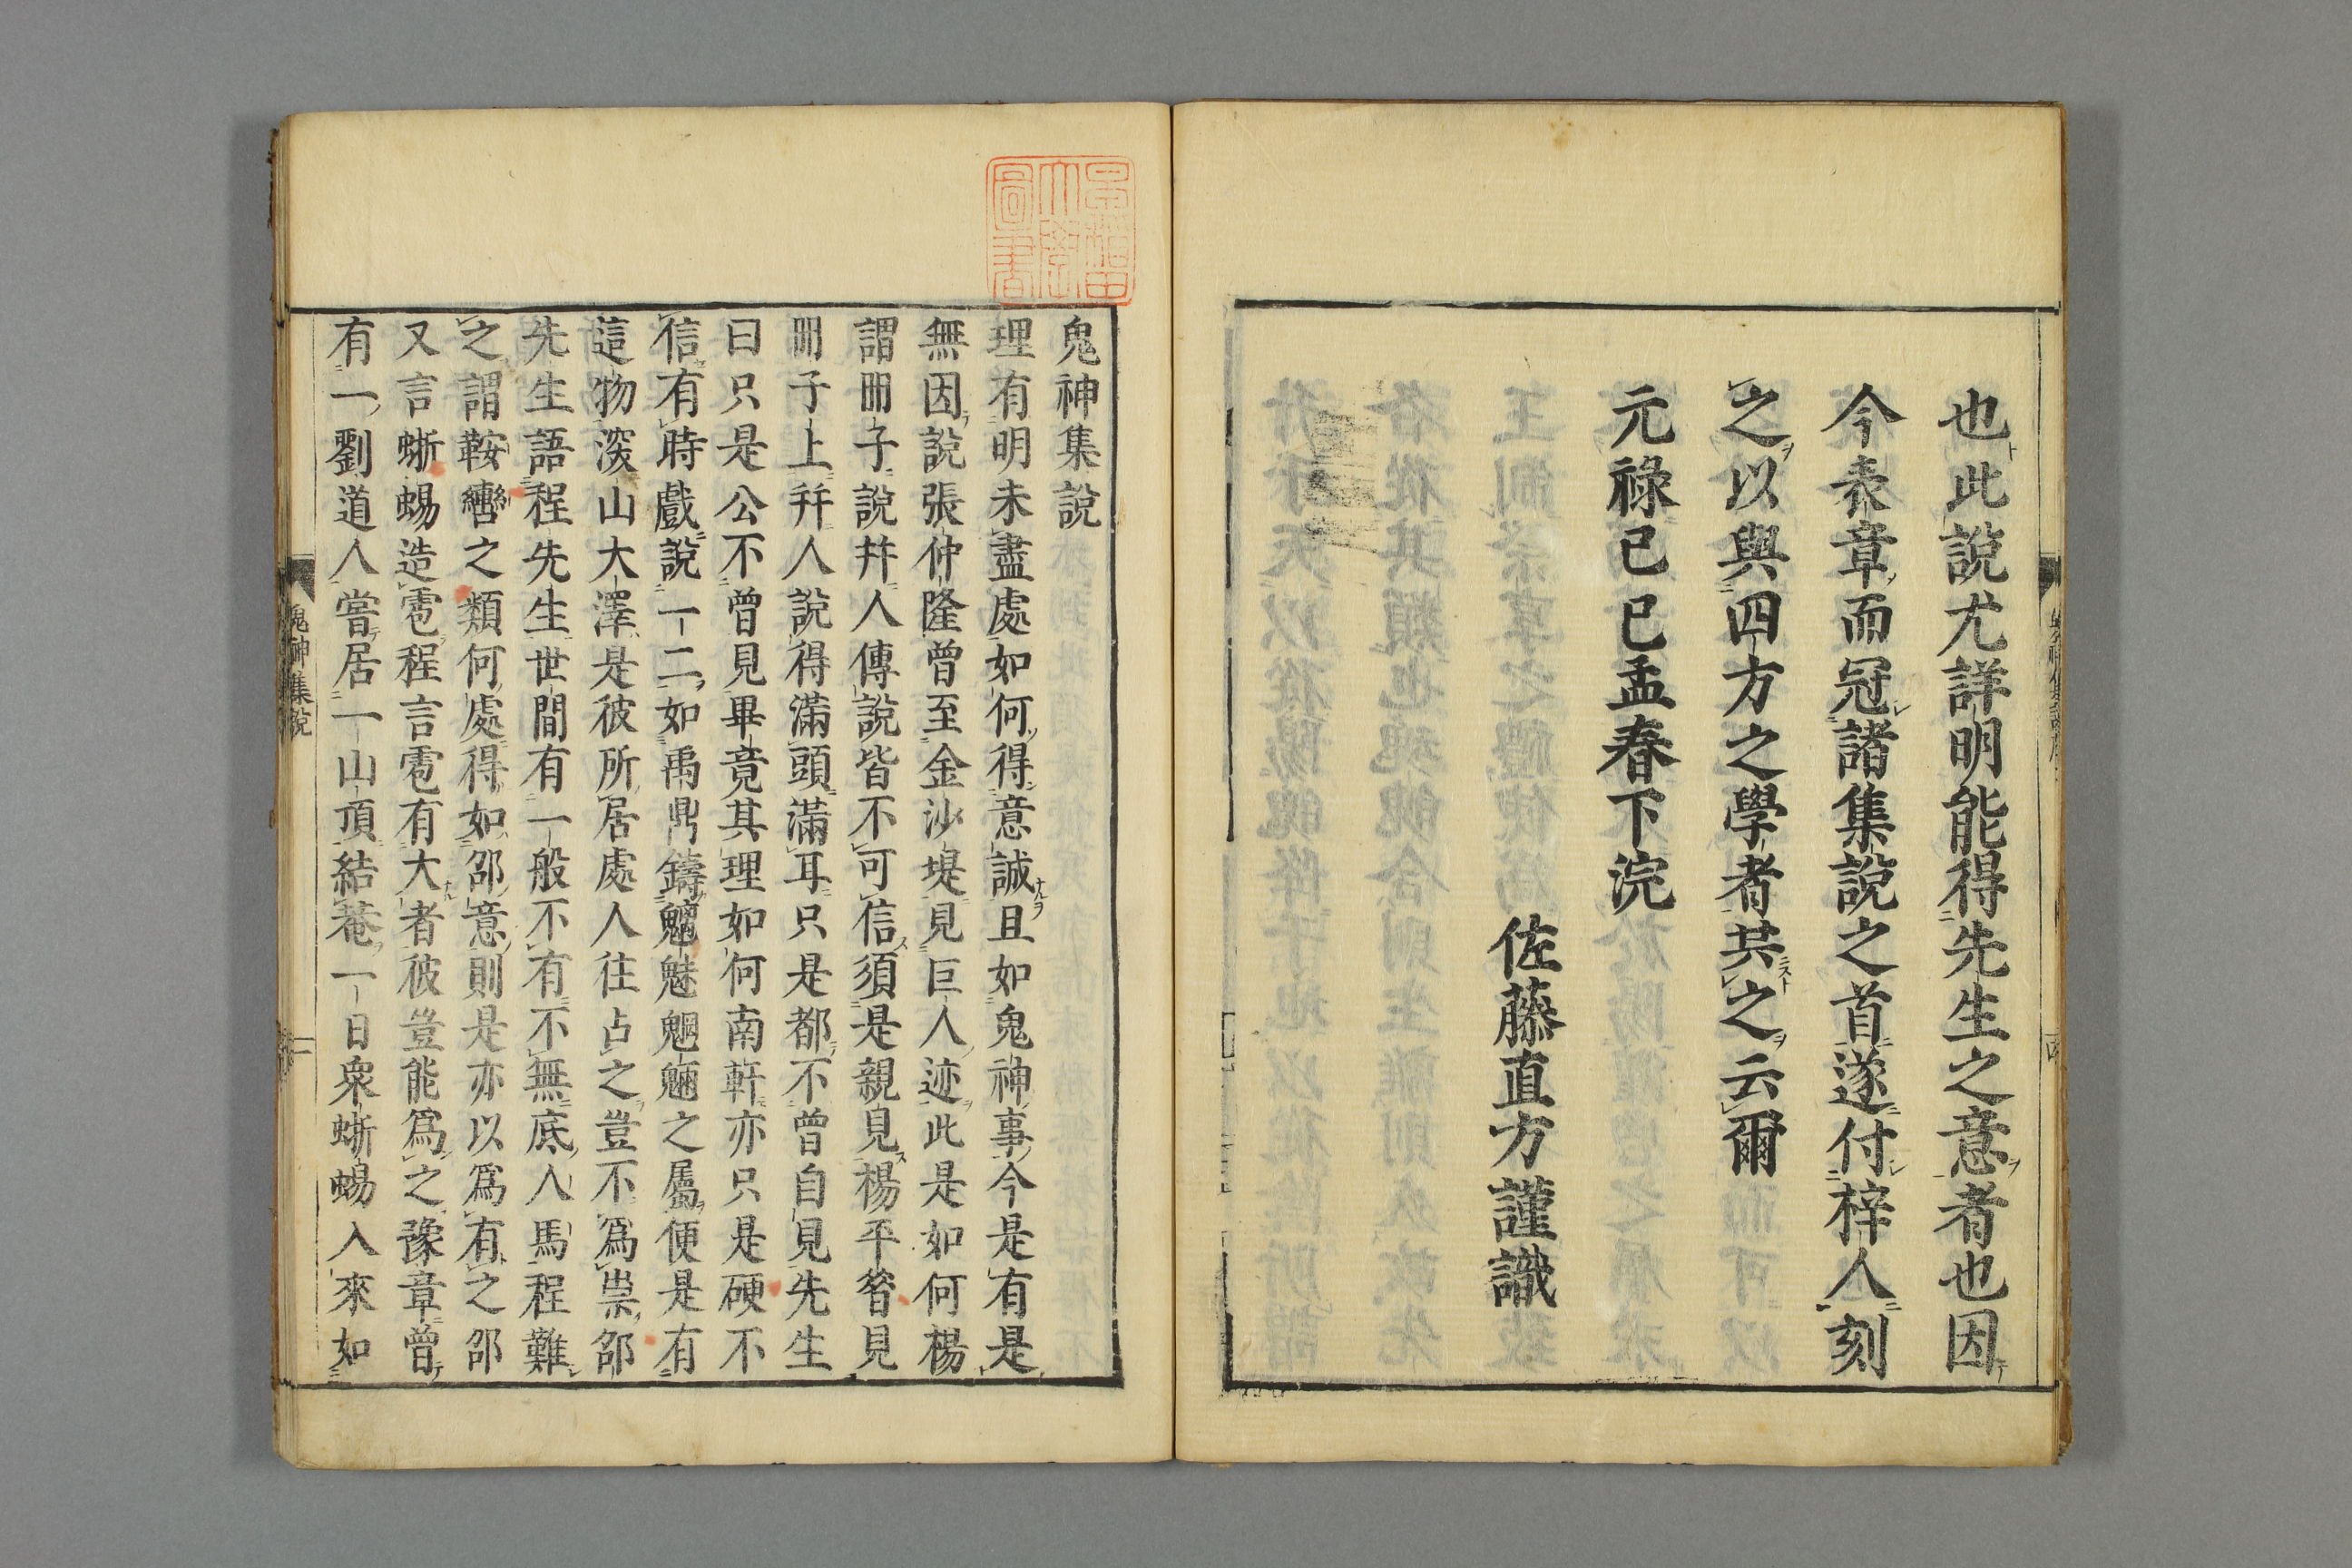 也此說尤詳明能得先生之意者也因
今表章而冠諸集說之首遂付梓人刻
之以與四方之學者共之云爾
元祿己巳孟春下浣
佐藤直方謹識
早稲田大學圖書
鬼神集說
理有明未盡處如何得意誠且如鬼神事今是有是
無因說張仲隆曾至金沙堤見巨人迹此是如何楊
謂冊子說幷人傳說皆不可信須是親見楊平昝見
冊子上幷人說得滿頭滿耳只是都不曾自見先生
曰只是公不曾見畢竟其理如何南軒亦只是硬不
信有時戲說一二如禹鼎鑄魑魅魍魎之屬便是有
這物深山大澤是彼所居處人往占之豈不爲祟邵
先生語程先生世間有一般不有不無底人馬程難
之謂鞍轡之類何處得如邵意則是亦以爲有之邵
又言蜥蜴造雹程言雹有大者彼豈能爲之豫章曾
有一劉道人嘗居一山頂結菴一日衆蜥蜴入來如
鬼神集說
一